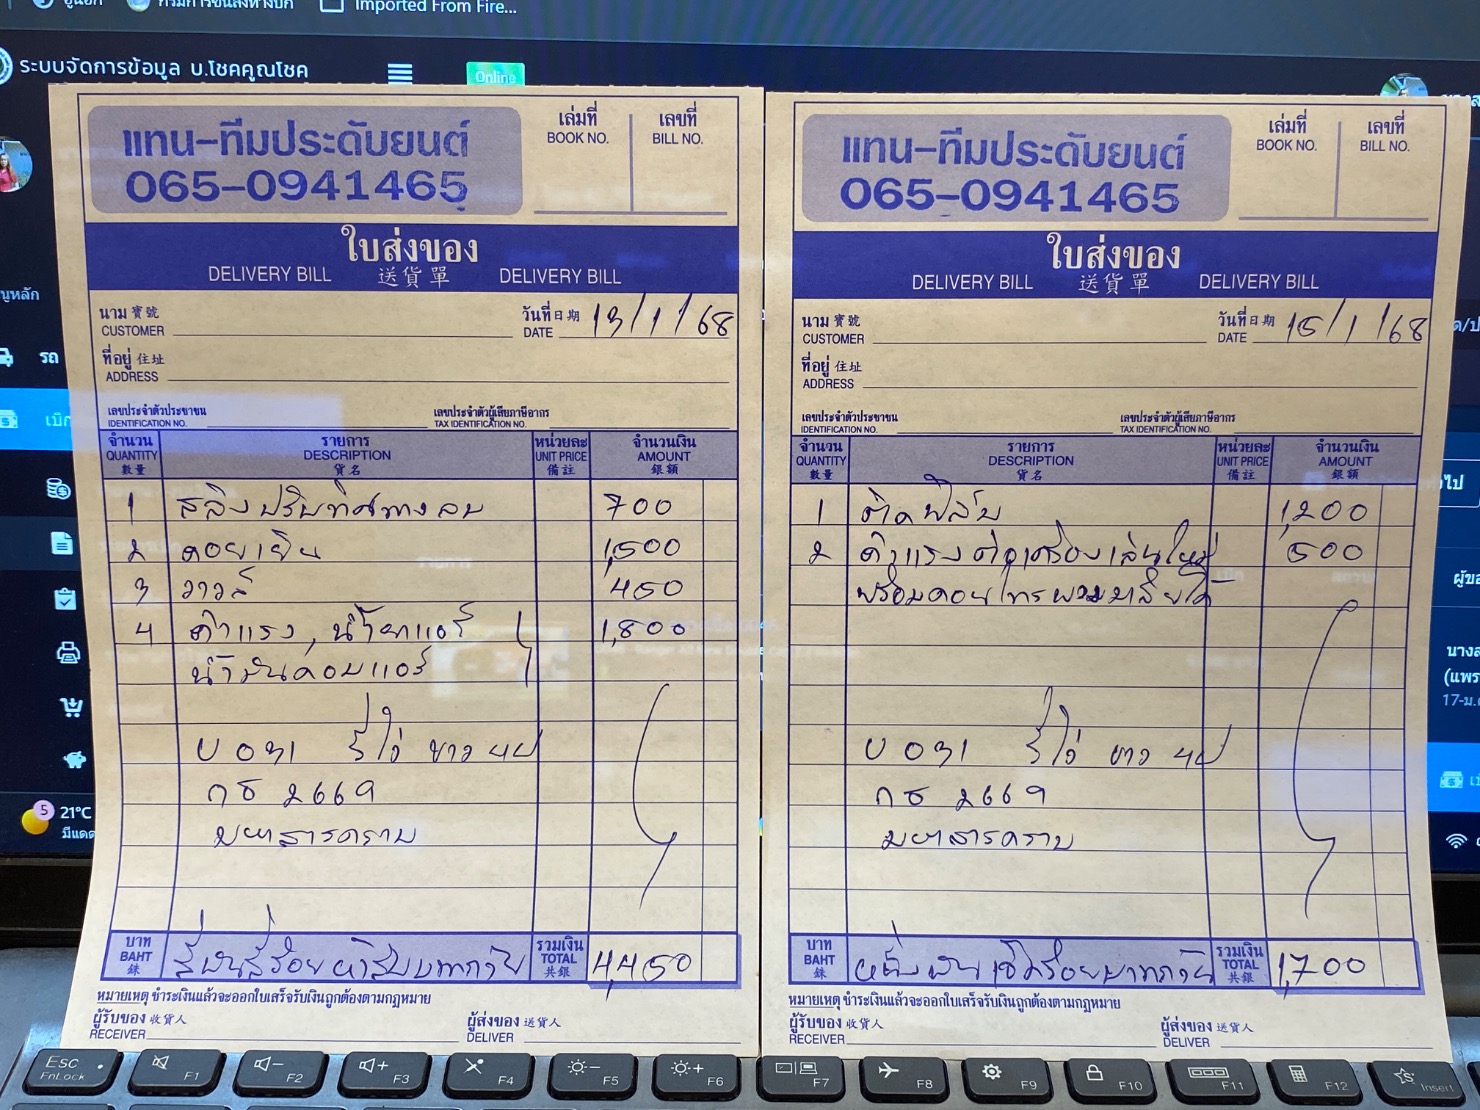 Imported From Fire...
ระบบจัดการข้อมูล บ.โชคคูณโชค
Online
แทน-ทีมประดับยนต์
065-0941465
เล่มที่ เลขที่
BOOK NO. BILL NO.
ใบส่งของ
DELIVERY BILL 送貨單 DELIVERY BILL
นาม 寶號 วันที่ 日期 13/1/68
CUSTOMER DATE
ที่อยู่ 住址
ADDRESS
เลขประจำตัวประชาชน เลขประจำตัวผู้เสียภาษีอากร
IDENTIFICATION NO. TAX IDENTIFICATION NO.
จำนวน รายการ หน่วยละ จำนวนเงิน
QUANTITY DESCRIPTION UNIT PRICE AMOUNT
數量 貨名 備註 銀額
1 สลิงปรับทิศทางลม 700
2 คอยเย็น 1,500
3 วาวล์ 450
4 ค่าแรง, น้ำยาแอร์ 1,800
น้ำมันคอมแอร์
บ 031 รีโว่ ขาว 4ป
กธ 2669
มหาสารคาม
บาท สี่พันสี่ร้อยห้าสิบบาทถ้วน รวมเงิน 4,450
BAHT TOTAL
銖 共銀
หมายเหตุ ชำระเงินแล้วจะออกใบเสร็จรับเงินถูกต้องตามกฎหมาย
ผู้รับของ 收貨人 ผู้ส่งของ 送貨人
RECEIVER DELIVER
แทน-ทีมประดับยนต์
065-0941465
เล่มที่ เลขที่
BOOK NO. BILL NO.
ใบส่งของ
DELIVERY BILL 送貨單 DELIVERY BILL
นาม 寶號 วันที่ 日期 15/1/68
CUSTOMER DATE
ที่อยู่ 住址
ADDRESS
เลขประจำตัวประชาชน เลขประจำตัวผู้เสียภาษีอากร
IDENTIFICATION NO. TAX IDENTIFICATION NO.
จำนวน รายการ หน่วยละ จำนวนเงิน
QUANTITY DESCRIPTION UNIT PRICE AMOUNT
數量 貨名 備註 銀額
1 ติดฟิล์ม 1,200
2 ค่าแรงต่อเครื่องเล่นใหม่ 500
บ 031 รีโว่ ขาว 4ป
กธ 2669
มหาสารคาม
บาท หนึ่งพันเจ็ดร้อยบาทถ้วน รวมเงิน 1,700
BAHT TOTAL
銖 共銀
หมายเหตุ ชำระเงินแล้วจะออกใบเสร็จรับเงินถูกต้องตามกฎหมาย
ผู้รับของ 收貨人 ผู้ส่งของ 送貨人
RECEIVER DELIVER
รถ
5 21°C
Esc F1 F2 F3 F4 F5 F6 F7 F8 F9 F10 F11 F12 Insert
FnLock